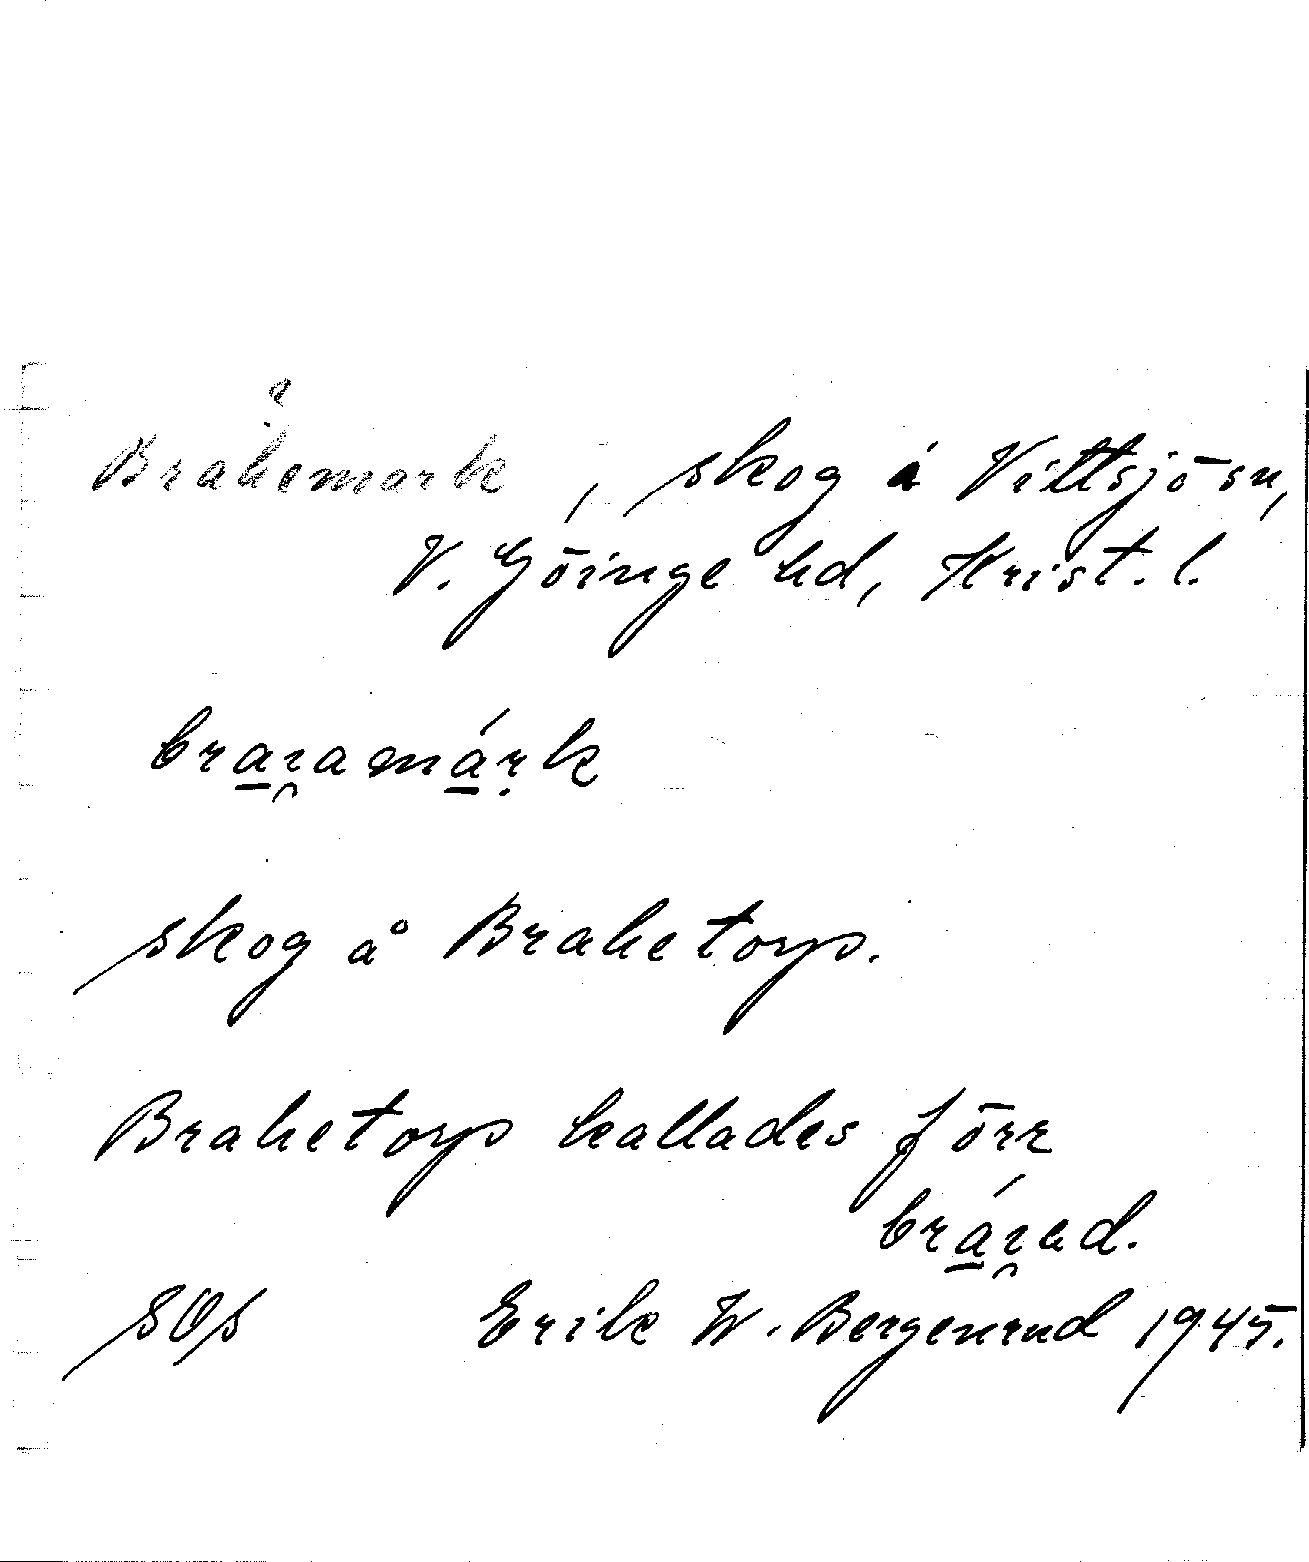 a
Brahemark, skog å Vittsjö sn,
V. Göinge hd, Krist. l.
bra̲ɿ̯amá̲ṛk
skog å Brahetorp.
Brahetorp kallades förr
brá̲ɿ̯ad.
SOS Erik W. Bergenrud 1945.